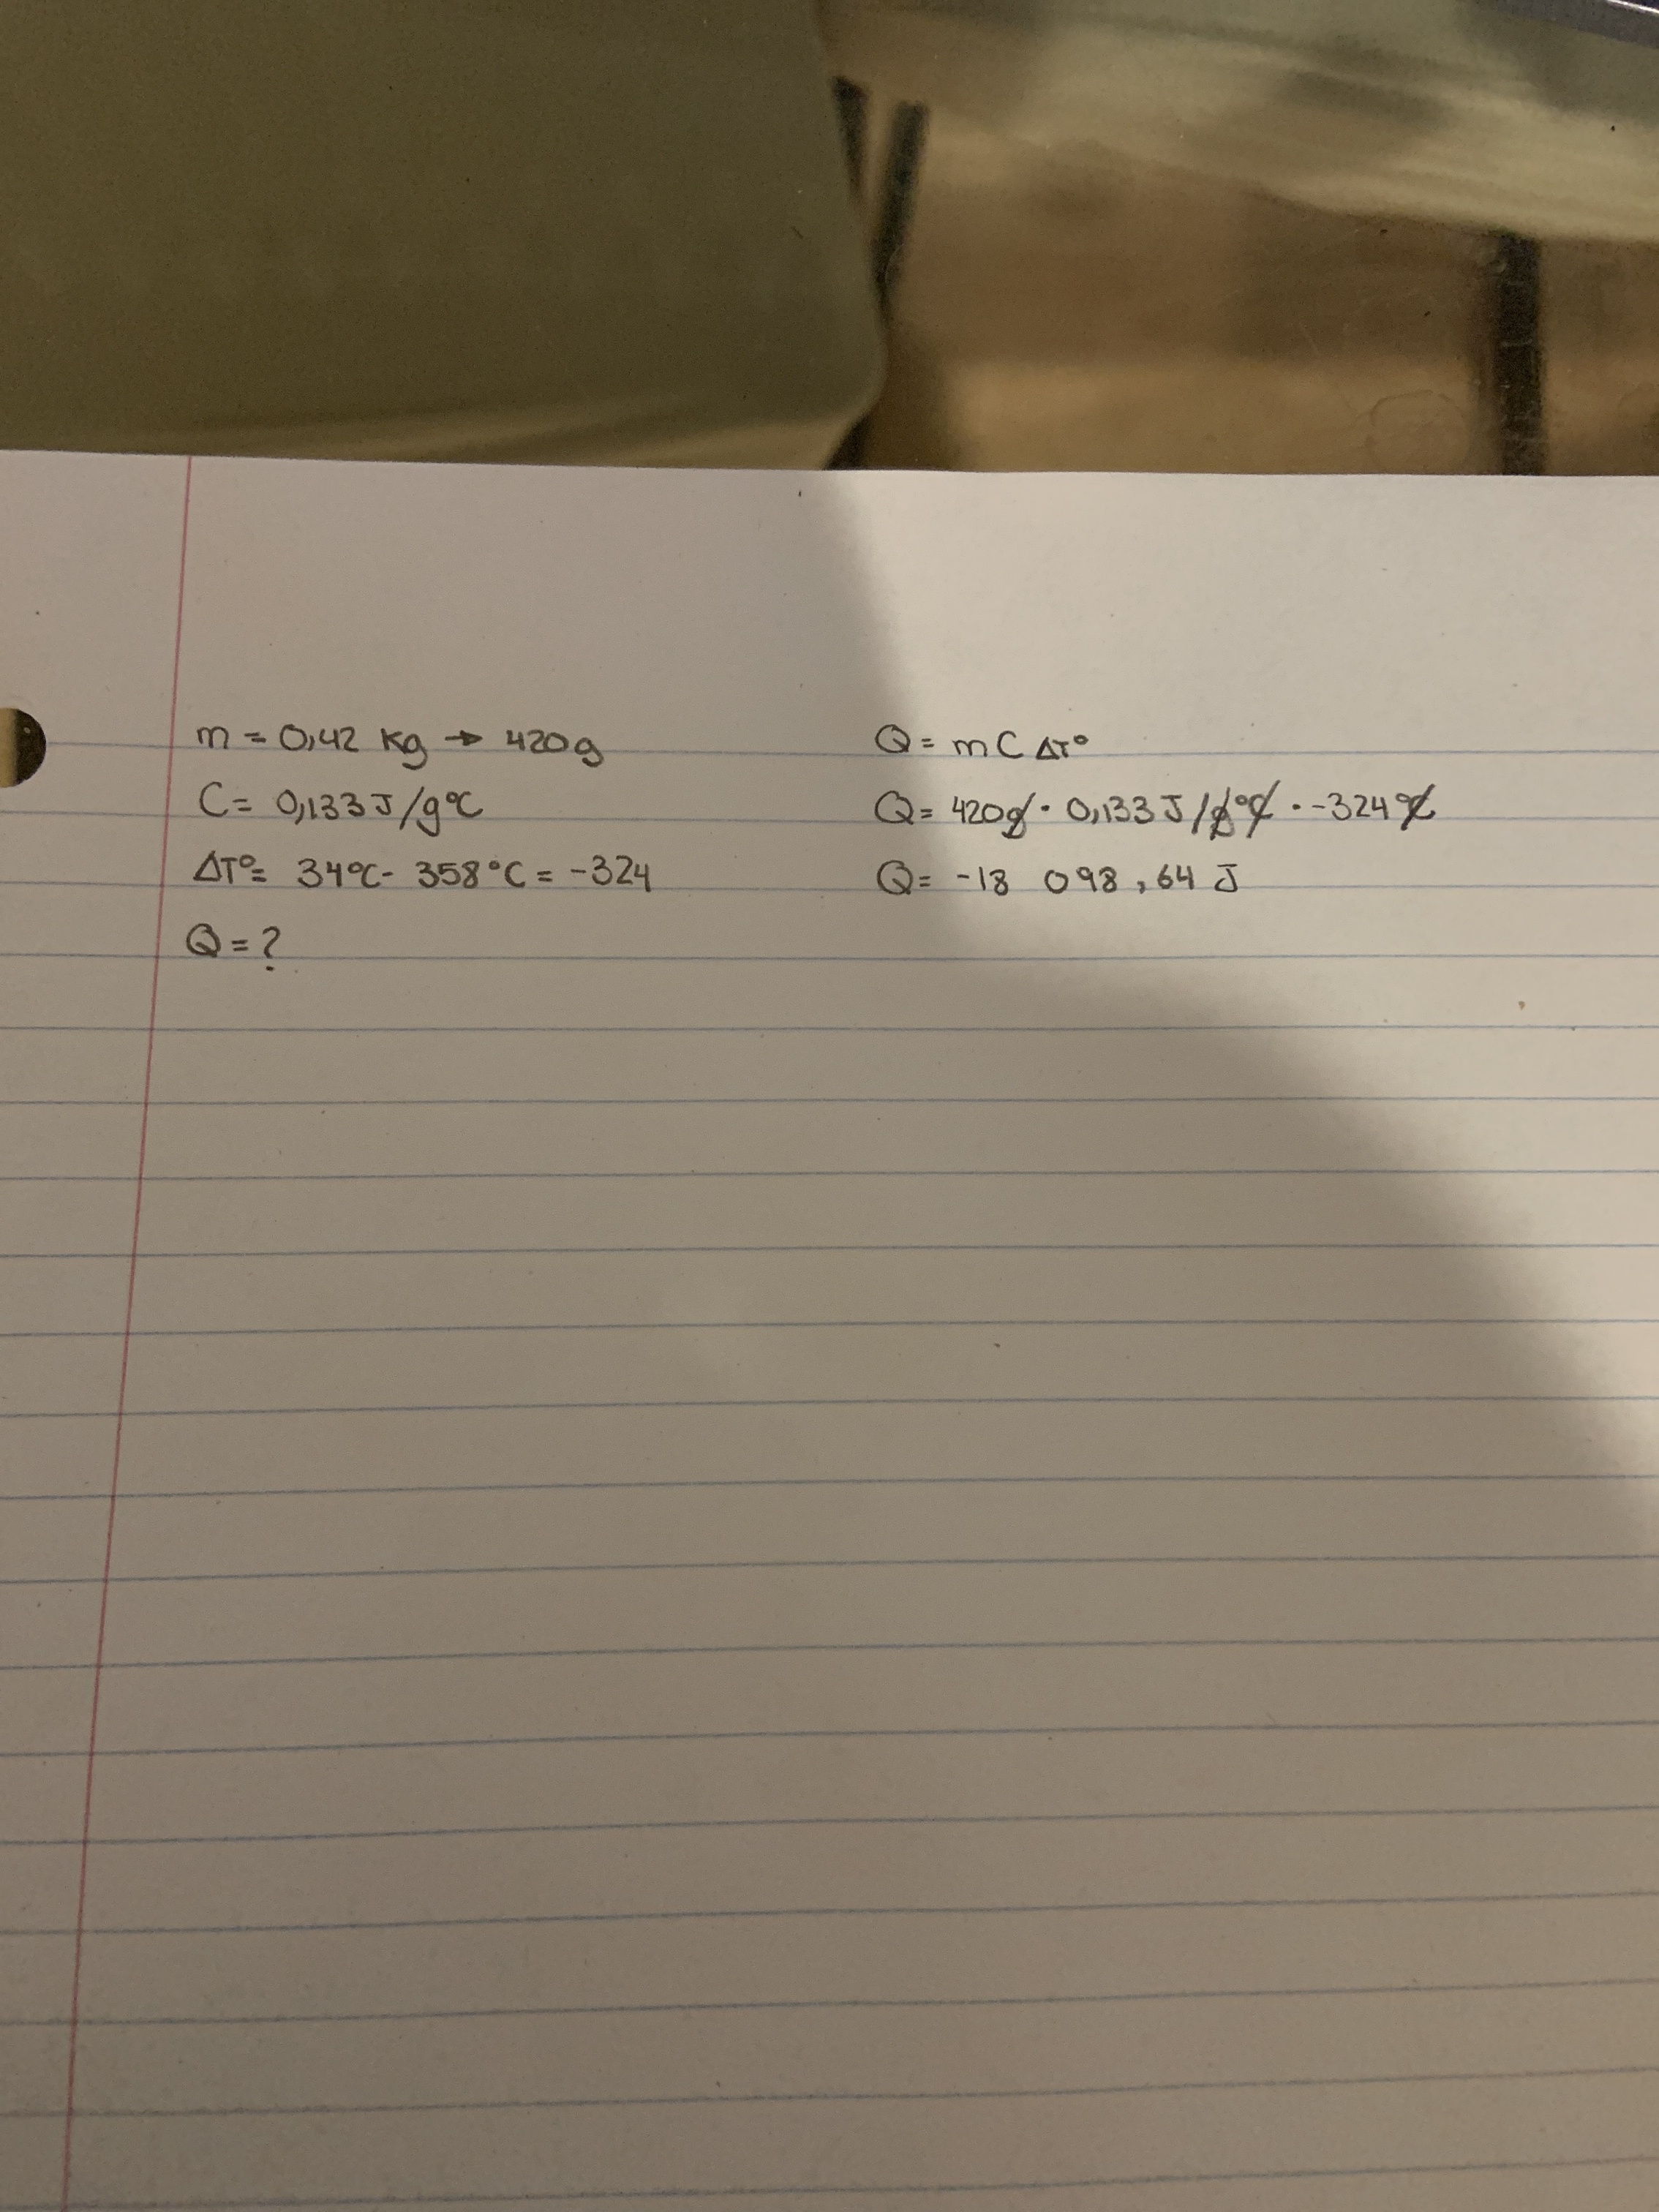 m = 0,42 Kg → 420g
C = 0,133 J/g°C
ΔT°= 34°C- 358°C = -324
Q = ?
Q = m C ΔT°
Q = 420g · 0,133 J/g°C · -324°C
Q = -18 098,64 J